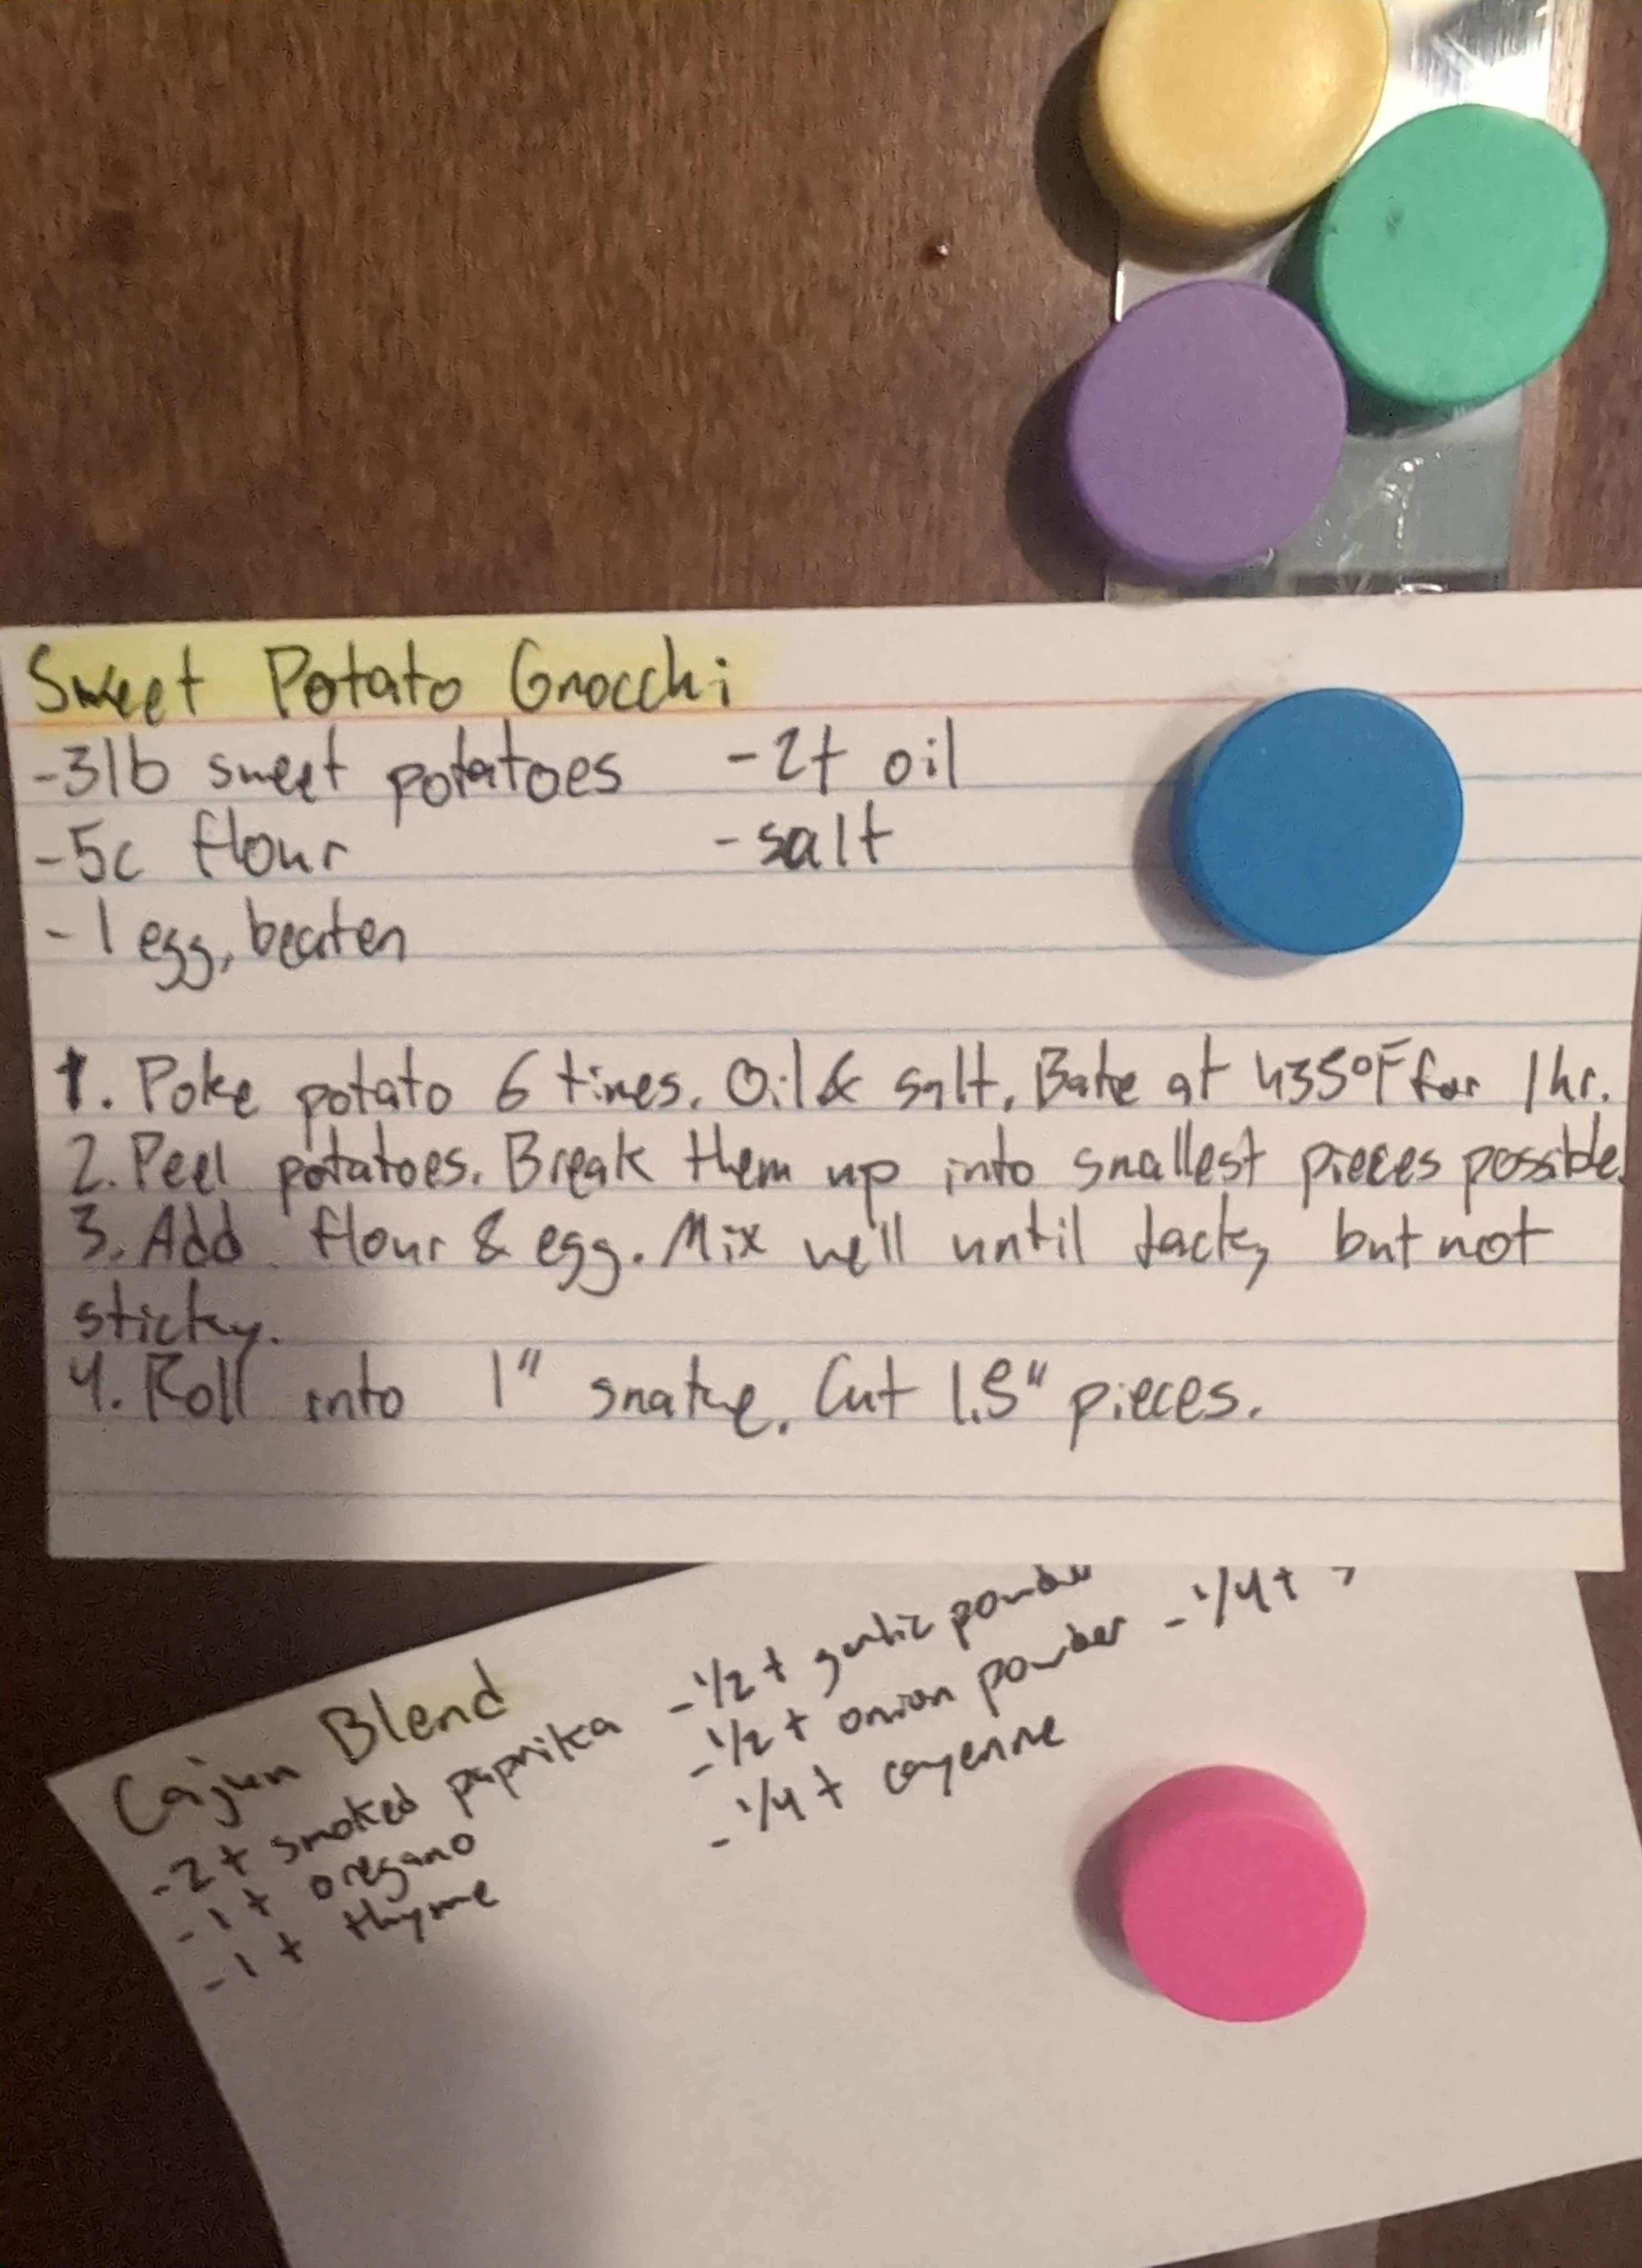 Sweet Potato Gnocchi
-3lb sweet potatoes -2t oil
-5c flour -salt
-1 egg, beaten
1. Poke potato 6 times. Oil & salt. Bake at 435°F for 1hr.
2. Peel potatoes. Break them up into smallest pieces possible.
3. Add flour & egg. Mix well until tacky but not
sticky.
4. Roll into 1" snake. Cut 1.5" pieces.
Cajun Blend
-2t smoked paprika -1/2t garlic powder -1/4t
-1t oregano -1/2t onion powder
-1t thyme -1/4t cayenne